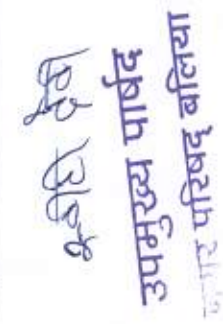 उपमुख्य पार्षद
नगर परिषद् बलिया